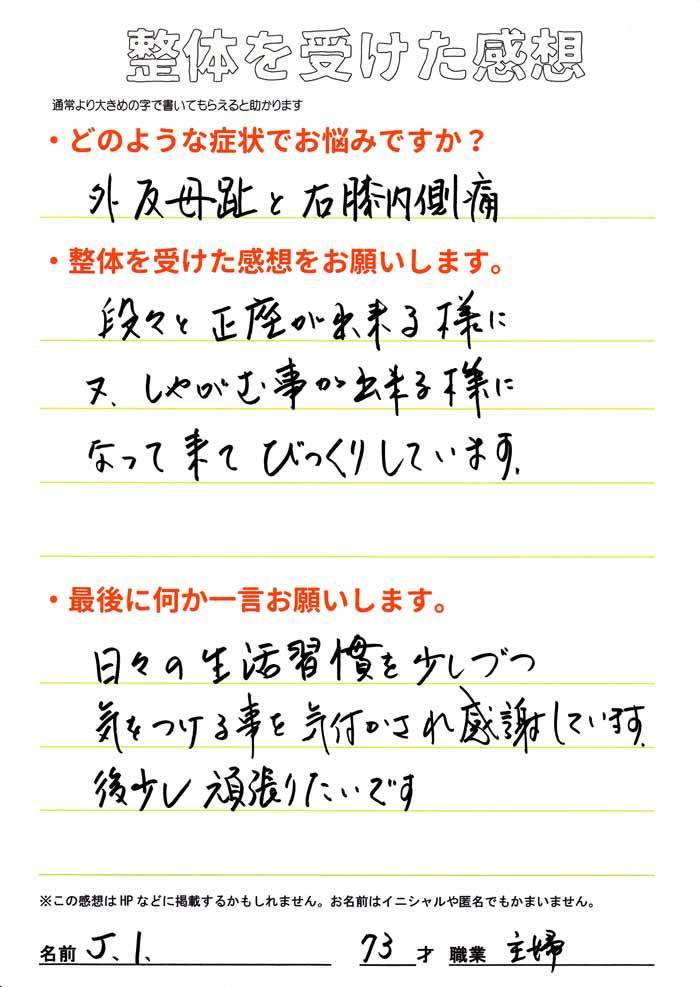 整体を受けた感想
通常より大きめの字で書いてもらえると助かります
・どのような症状でお悩みですか？
外反母趾と右膝内側痛
・整体を受けた感想をお願いします。
段々と正座が出来る様に
又、しゃがむ事が出来る様に
なって来てびっくりしています。
・最後に何か一言お願いします。
日々の生活習慣を少しづつ
気をつける事を気付かされ感謝しています。
後少し頑張りたいです
※この感想はHPなどに掲載するかもしれません。お名前はイニシャルや匿名でもかまいません。
名前 J.I. 73才 職業 主婦